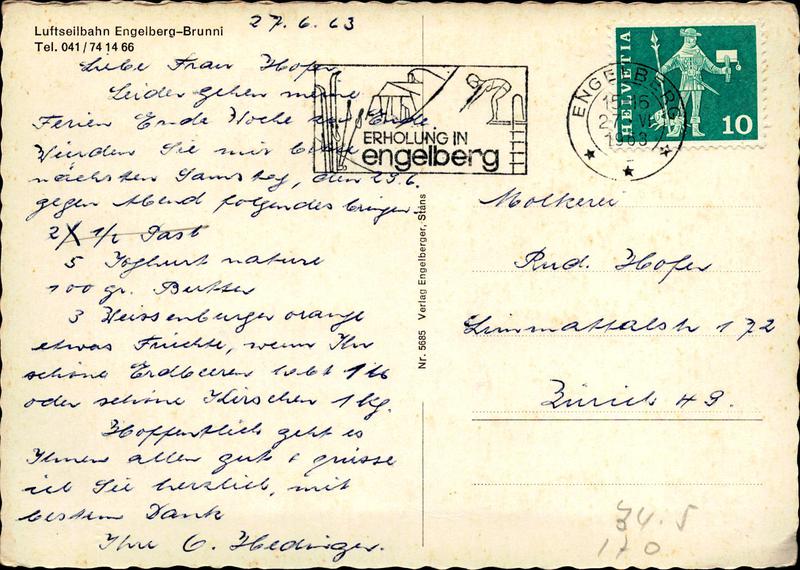 Luftseilbahn Engelberg–Brunni
Tel. 041 / 74 14 66
27.6.63
Liebe Frau Hofer
Leider gehen meine
Ferien Ende Woche zu Ende
Würden Sie mir bitte
nächsten Samstag, den 29.6.
gegen Abend folgendes bringen
2 X 1/2 Past
5 Joghurt nature
100 gr. Butter
3 Weissenburger orange
etwas Früchte, wenn Ihr
schöne Erdbeeren habt 1 Kg
oder schöne Kirschen 1 kg.
Hoffentlich geht es
Ihnen allen gut & grüsse
ich Sie herzlich, mit
bestem Dank
Ihre O. Hedinger.
Nr. 5685 Verlag Engelberger, Stans
ERHOLUNG IN
engelberg
ENGELBERG
15-16
27. VI.
1963
HELVETIA
10
Molkerei
Rud. Hofer
Limmattalstr 172
Zürich 49.
74.5
170